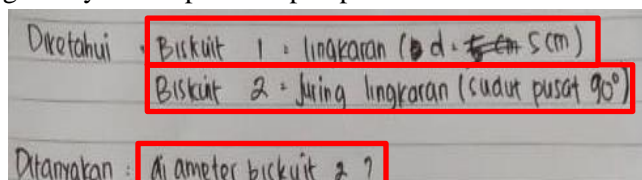 Diketahui : Biskuit 1 = lingkaran (d = 5 cm)
Biskuit 2 = Juring lingkaran (sudut pusat 90°)
Ditanyakan : diameter biskuit 2 ?